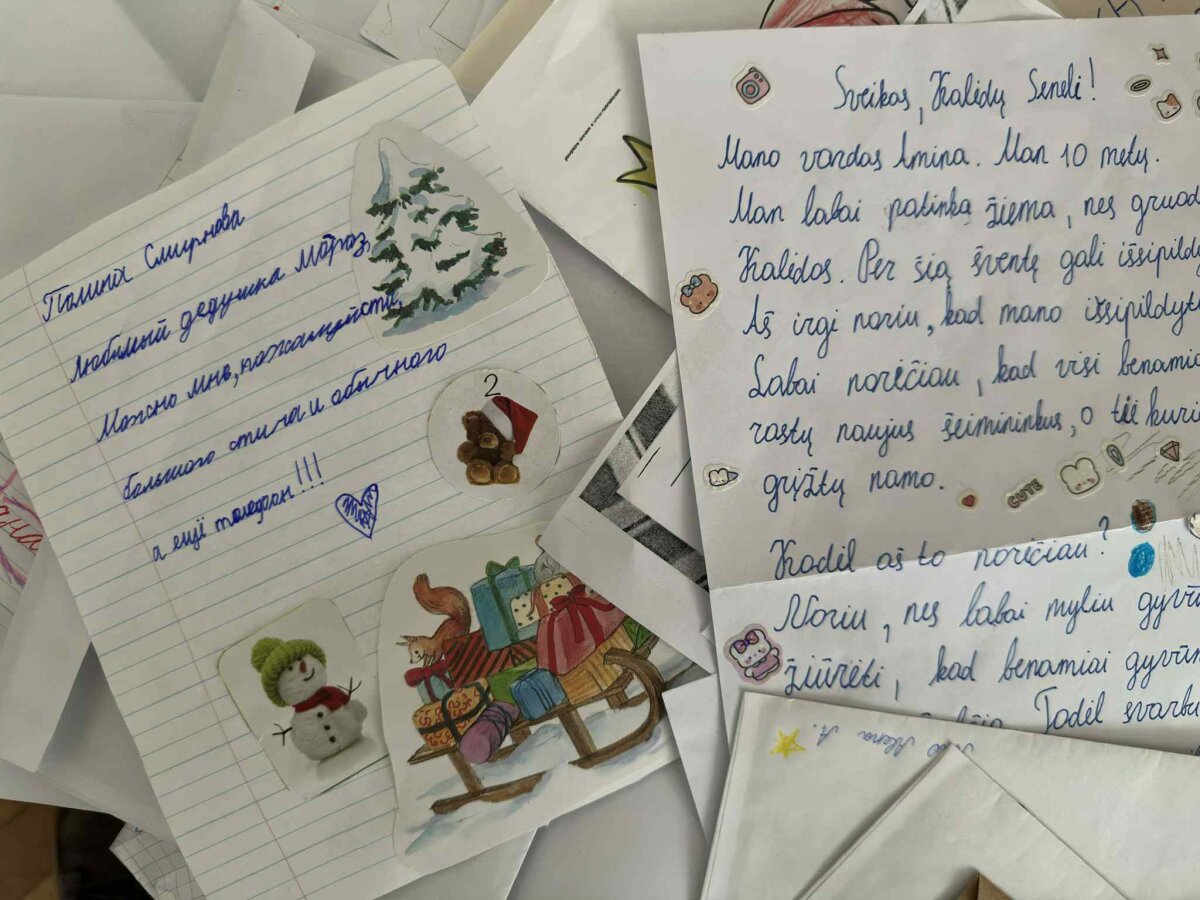 Полина Смирнова
Любимый дедушка Мороз,
Можно мне, пожалуйста,
большого стича и обычного
а ещё телефон!!!
2
Sveikas, Kalėdų Seneli!
Mano vardas Amina. Man 10 metų.
Man labai patinka žiema, nes gruod
Kalėdos. Per šią šventę gali išsipildy
Aš irgi noriu, kad mano išsipildyt
Labai norėčiau, kad visi benamia
rastų naujus šeimininkus, o tie kuri
grįžtų namo.
CUTE
Kodėl aš to norėčiau?
Noriu, nes labai myliu gyvū
žiūrėti, kad benamiai gyvūn
Todėl svarbu
Nuo Alena A.